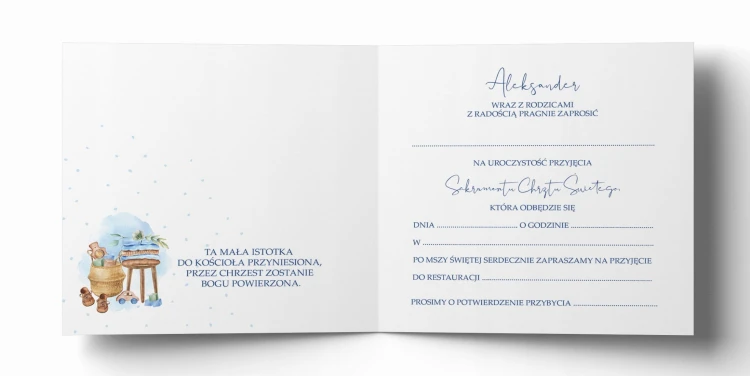 TA MAŁA ISTOTKA
DO KOŚCIOŁA PRZYNIESIONA,
PRZEZ CHRZEST ZOSTANIE
BOGU POWIERZONA.
Aleksander
WRAZ Z RODZICAMI
Z RADOŚCIĄ PRAGNIE ZAPROSIĆ
NA UROCZYSTOŚĆ PRZYJĘCIA
Sakramentu Chrztu Świętego,
KTÓRA ODBĘDZIE SIĘ
DNIA ........................ O GODZINIE ........................
W ........................
PO MSZY ŚWIĘTEJ SERDECZNIE ZAPRASZAMY NA PRZYJĘCIE
DO RESTAURACJI ........................
PROSIMY O POTWIERDZENIE PRZYBYCIA ........................